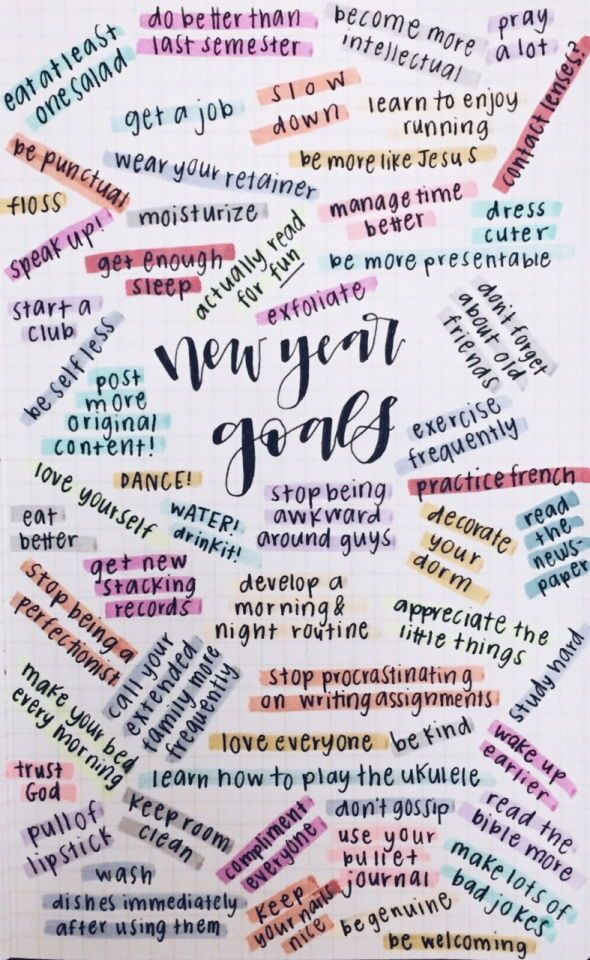 do better than
last semester
become more
intellectual
pray
a lot
eat at least
one salad
get a job
slow
down
learn to enjoy
running
contact lenses?
be punctual
wear your retainer
be more like Jesus
floss
moisturize
manage time
better
dress
cuter
speak up!
get enough
sleep
actually read
for fun
be more presentable
exfoliate
start a
club
don't forget
about old
friends
be self less
new year
goals
post
more
original
content!
exercise
frequently
love yourself
DANCE!
practice french
stop being
awkward
around guys
eat
better
WATER!
drink it!
decorate
your
dorm
read
the
news-
paper
get new
stacking
records
stop being a
perfectionist
develop a
morning &
night routine
appreciate the
little things
call your
extended
family more
frequently
study hard
make your bed
every morning
stop procrastinating
on writing assignments
love everyone
be kind
wake up
earlier
trust
God
learn how to play the ukulele
pull of
lipstick
keep room
clean
compliment
everyone
don't gossip
read the
bible more
use your
bullet
journal
make lots of
bad jokes
wash
dishes immediately
after using them
keep
your nails
nice
be genuine
be welcoming